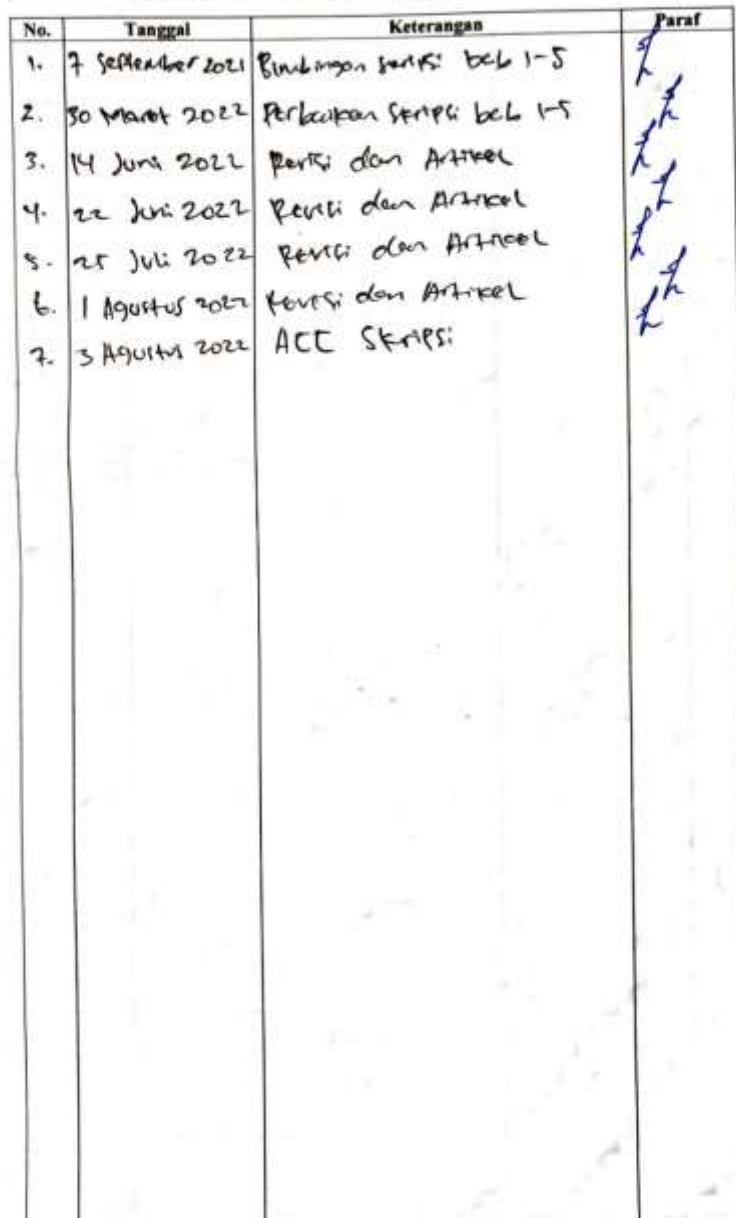 No. Tanggal Keterangan Paraf
1. 7 September 2021 Bimbingan skripsi bab 1-5
2. 30 Maret 2022 Perbaikan Skripsi bab 1-5
3. 14 Juni 2022 Revisi dan Artikel
4. 22 Juni 2022 Revisi dan Artikel
5. 25 Juli 2022 Revisi dan Artikel
6. 1 Agustus 2022 Revisi dan Artikel
7. 3 Agustus 2022 ACC Skripsi